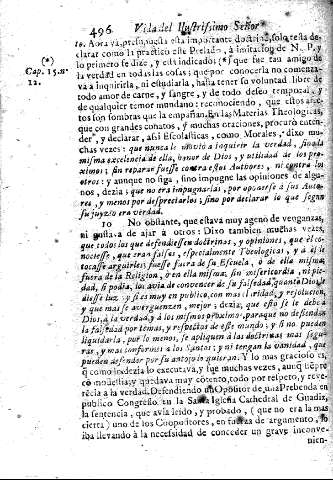 496 Vida del Ilustrissimo Señor
to. Aora va, presupuesta esta importante doctrina, solo resta de-
clarar como la practicò este Prelado, à imitacion de N. P. y
lo primero se dize, y està indicado: (*) que fue tan amigo de
(*)
Cap. 15. nº
12.
la verdad en todas las cosas: que por conocerla no comenza-
va à inquirirla, ni estudiarla, hasta tener su voluntad libre de
todo amor de carne, y sangre, y de todo deseo temporal, y
de qualquier temor mundano: reconociendo, que estos afec-
tos son sombras que la empañan. En las Materias Theologicas,
que con grandes conatos, y muchas oraciones, procurò enten-
der, y declarar, assi Escolasticas, como Morales, dixo mu-
chas vezes: que nunca le moviò à inquirir la verdad, sino la
misma excelencia de ella, honor de Dios, y utilidad de los pro-
ximos; sin reparar fuesse contra estos Authores, ni contra los
otros: y aunque no siga, sino impugne las opiniones de algu-
nos, dezia: que no era impugnarlas, por oponerse à sus Auto-
res, y menos por despreciarlos; sino por declarar lo que segun
su juyzio era verdad.
10 No obstante, que estava muy ageno de venganzas,
ni gustava de ajar à otros: Dixo tambien muchas vezes,
que todos los que defendiessen doctrinas, y opiniones, que èl co-
nociesse, que eran falsas, especialmente Theologicas, y à èl le
tocasse arguirles; fuesse fuera de su Escuela, ò de ella misma,
fuera de la Religion, ò en ella misma, sin misericordia, ni pie-
dad, si podia, los avia de convencer de su falsedad, quanto Dios le
diesse luz, y si es muy en publico, con mas claridad, y resolucion,
y que mas se avergüenzen, mejor; dezia, que esto se le debe à
Dios, à la verdad, y à los mismos proximos: paraque no defiendan
la falsedad por temas, y respectos de este mundo; y si no pueden
liquidarla, por lo menos, se apliquen à las doctrinas mas segu-
ras, y mas conformes à los Santos; y ni tengan la vanidad, que
pueden defender por su antojo lo quieran. Y lo mas gracioso es,
que como lo dezia lo executava, y fue muchas vezes, aunque siempre
cõ modestia; y quedava muy cõtento, todo por respeto, y reve-
rencia à la verdad. Defendiendo un Opositor de una Prebenda en
publico Congresso en la Santa Iglesia Cathedral de Guadix,
la sentencia, que avia leido, y probado, (que no era la mas
cierta) uno de los Coopositores, en fuerza de argumento, lo
iba llevando à la necessidad de conceder un grave inconve-
nien-